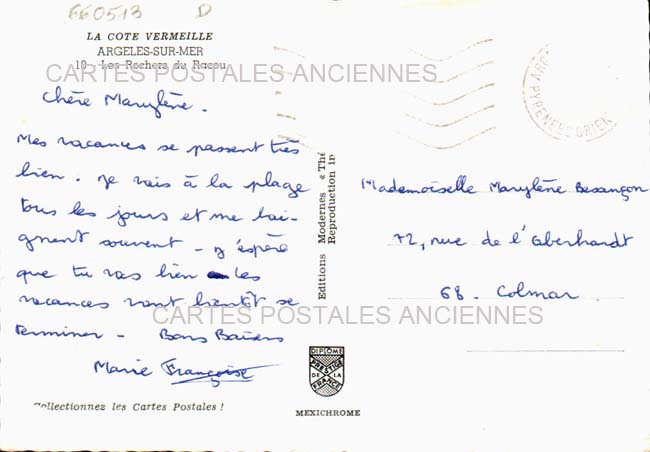 660513 D
LA COTE VERMEILLE
ARGELES-SUR-MER
10 - Les Rochers du Racou
CARTES POSTALES ANCIENNES
Chère Marylène.
Mes vacances se passent très
bien. Je vais à la plage
tous les jours et me bai-
gnent souvent - J'espère
que tu vas bien les
vacances vont bientôt se
terminer - Bons Baisers
Marie Françoise
Collectionnez les Cartes Postales !
Editions Modernes « Thé
Reproduction in
DIPLOME
PRESTIGE
DE LA
FRANCE
MEXICHROME
PYRENEES ORIEN
Mademoiselle Marylène Besançon
72, rue de l'Oberhardt
68 - Colmar
CARTES POSTALES ANCIENNES